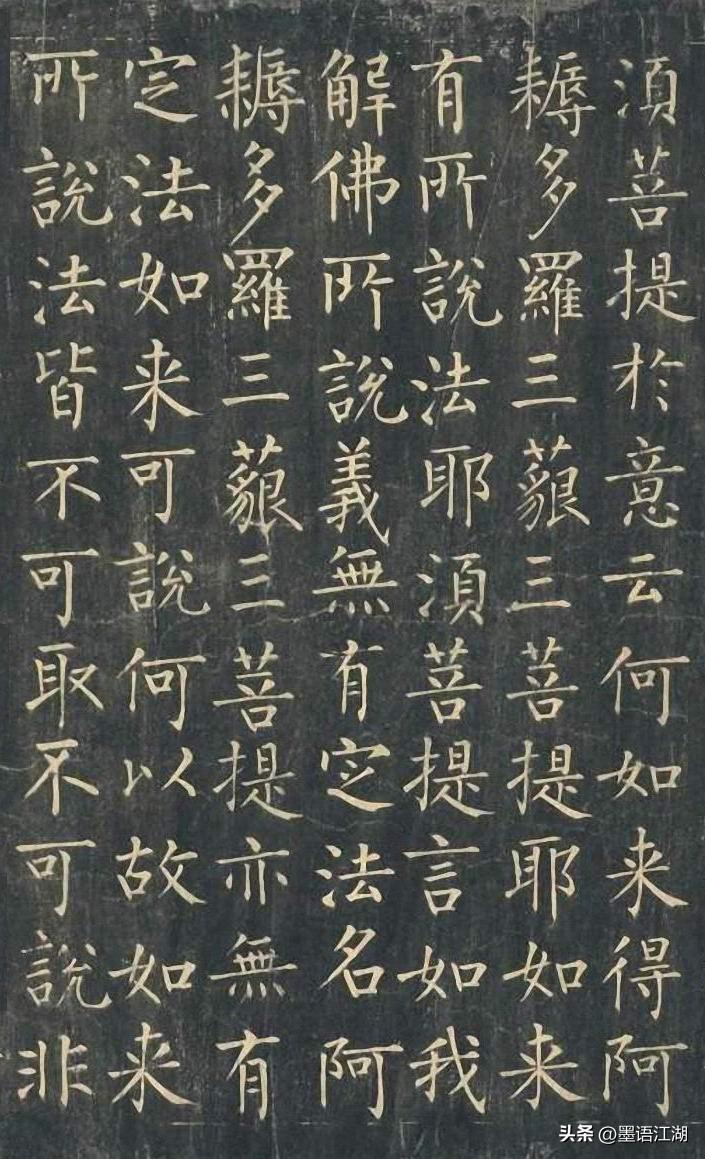 湏菩提於意云何如来得阿
耨多羅三藐三菩提耶如来
有所說法耶湏菩提言如我
解佛所說義無有定法名阿
耨多羅三藐三菩提亦無有
定法如来可說何以故如来
所說法皆不可取不可說非
头条 @墨语江湖